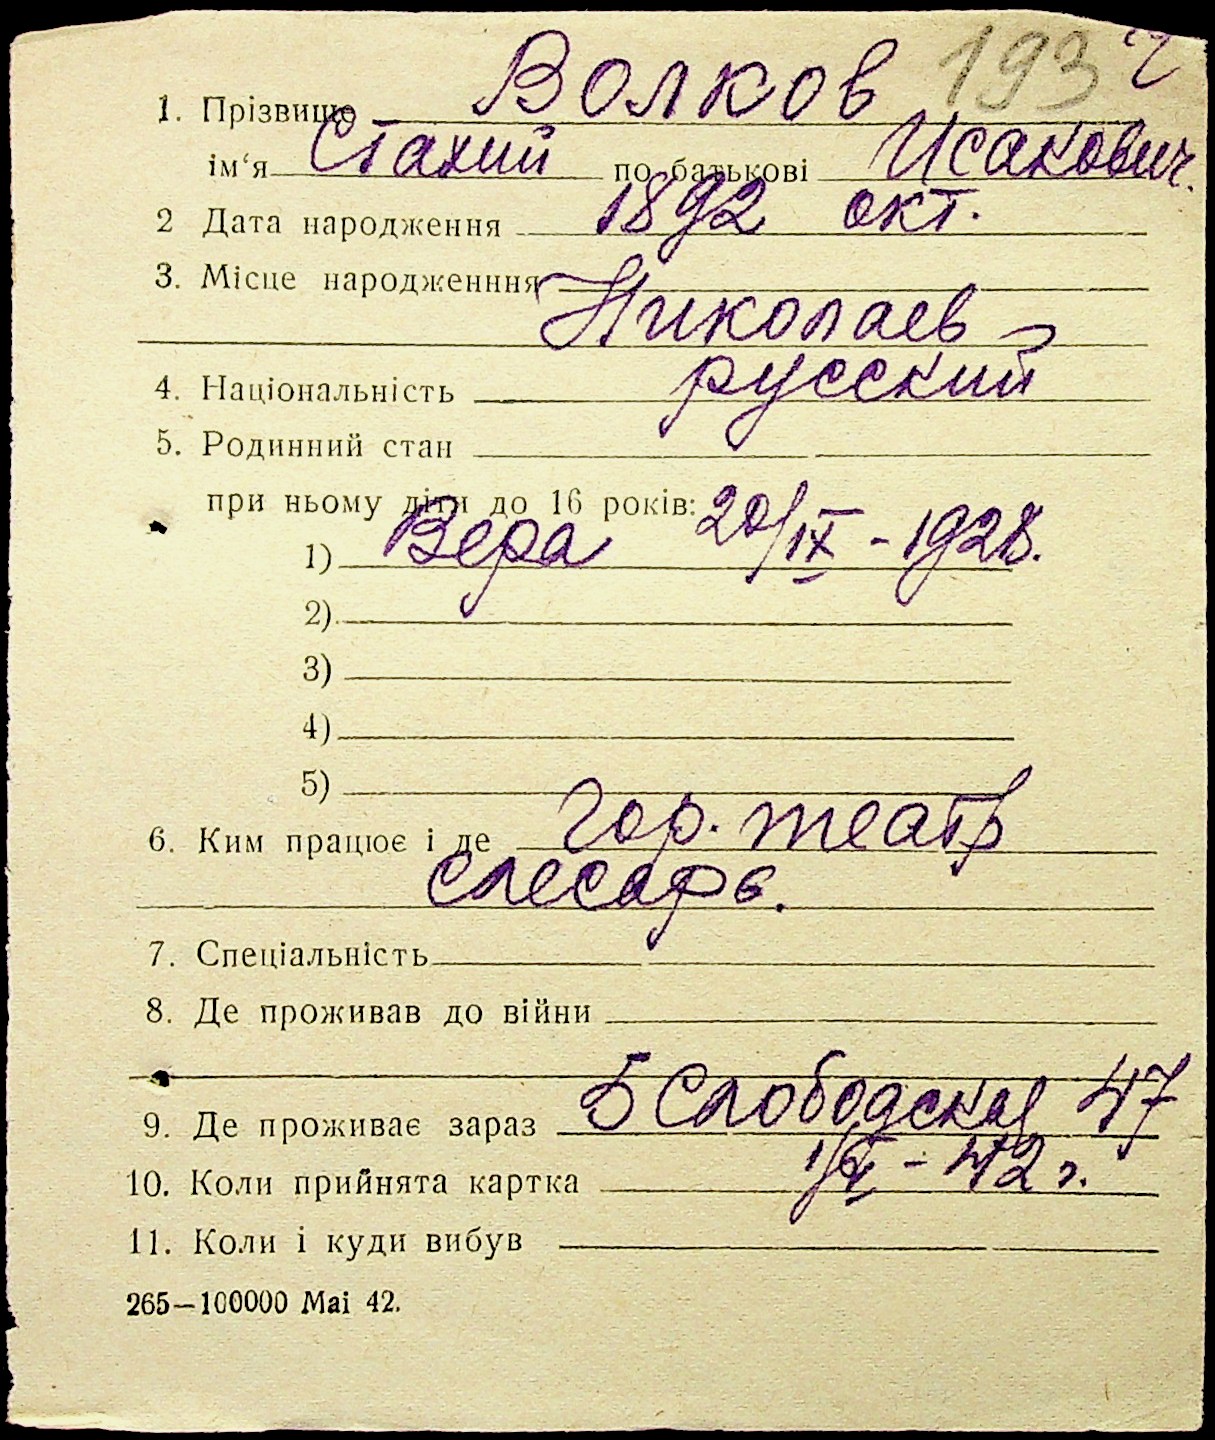 193 ч
1. Прізвище Волков
ім‘я Стахий по батькові Исакович.
2 Дата народження 1892 окт.
3. Місце народженння
Николаев
4. Національність русский
5. Родинний стан
при ньому діти до 16 років:
1) Вера 20/IX - 1928.
2)
3)
4)
5)
6. Ким працює і де гор. театр
слесарь.
7. Спеціальність
8. Де проживав до війни
9. Де проживає зараз Б Слободская 47
10. Коли прийнята картка - 42 г.
11. Коли і куди вибув
265—100000 Mai 42.